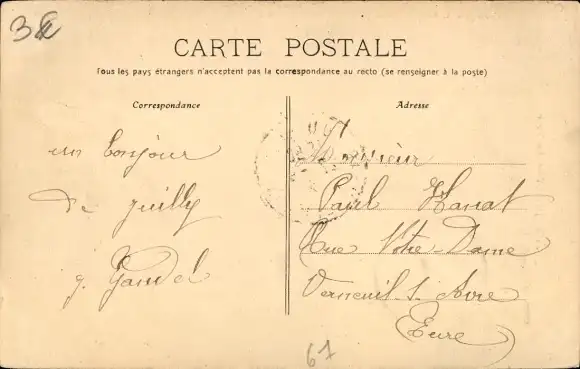 3€
CARTE POSTALE
Tous les pays étrangers n'acceptent pas la correspondance au recto (se renseigner à la poste)
Correspondance
un bonjour
de Juilly
g. Gandel
Adresse
Monsieur
Paul Hanat
Rue Notre-Dame
Verneuil-s-Avre
(Eure)
67